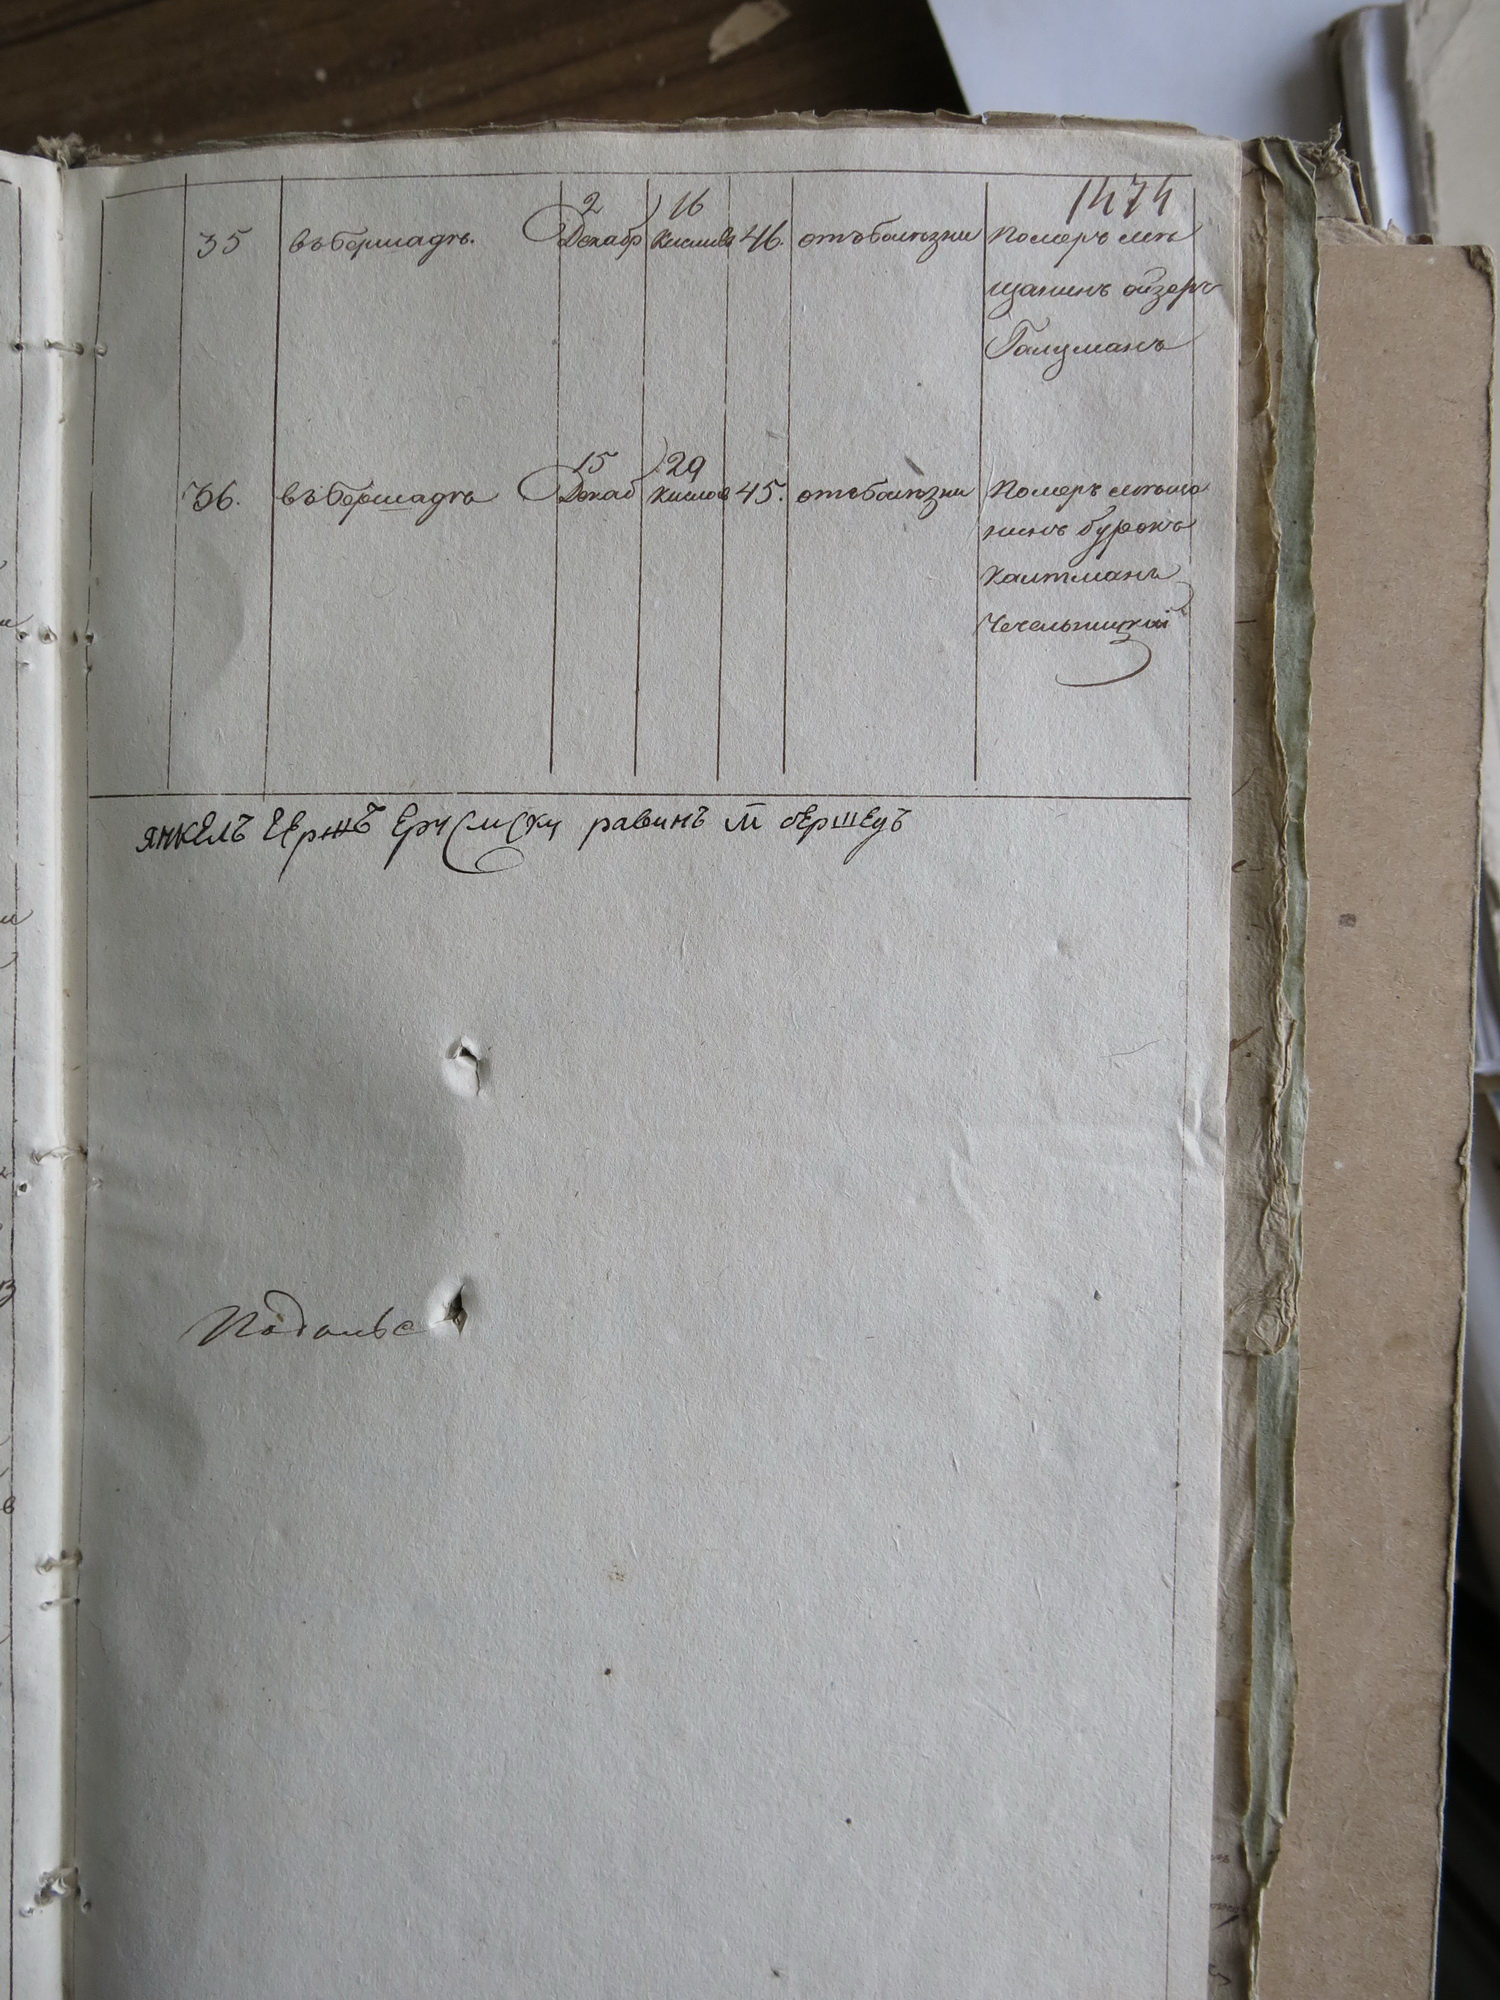 1474
2 16
35 въ бершадѣ. Декабр Кислива 46. отъ болѣзни Померъ мѣ
щанинъ ойзеръ
Галцманъ
15 29
36. въ бершадѣ Декаб Кислов 45. отъ болѣзни Померъ мѣща
нинъ бурохъ
Калтманъ
Чечельницкий
янкелъ равинъ м бершедъ
Подольс